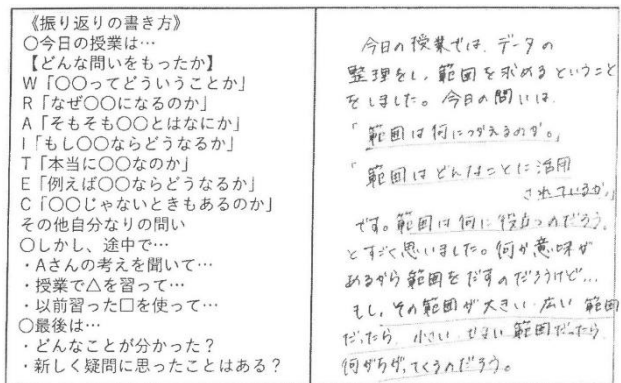 《振り返りの書き方》
〇今日の授業は…
【どんな問いをもったか】
W「〇〇ってどういうことか」
R「なぜ〇〇になるのか」
A「そもそも〇〇とはなにか」
I「もし〇〇ならどうなるか」
T「本当に〇〇なのか」
E「例えば〇〇ならどうなるか」
C「〇〇じゃないときもあるのか」
その他自分なりの問い
〇しかし、途中で…
・Aさんの考えを聞いて…
・授業で△を習って…
・以前習った□を使って…
〇最後は…
・どんなことが分かった？
・新しく疑問に思ったことはある？
今日の授業では、データの
整理をし、範囲を求めるということ
をしました。今日の問いは、
「範囲は何につかえるのか。」
「範囲はどんなことに活用
されているか。」
です。範囲は何に役立つのだろう。
とすごく思いました。何か意味が
あるから範囲をだすのだろうけど…
もし、その範囲が大きい広い範囲
だったら、小さいせまい範囲だったら
何がちがってくるのだろう。